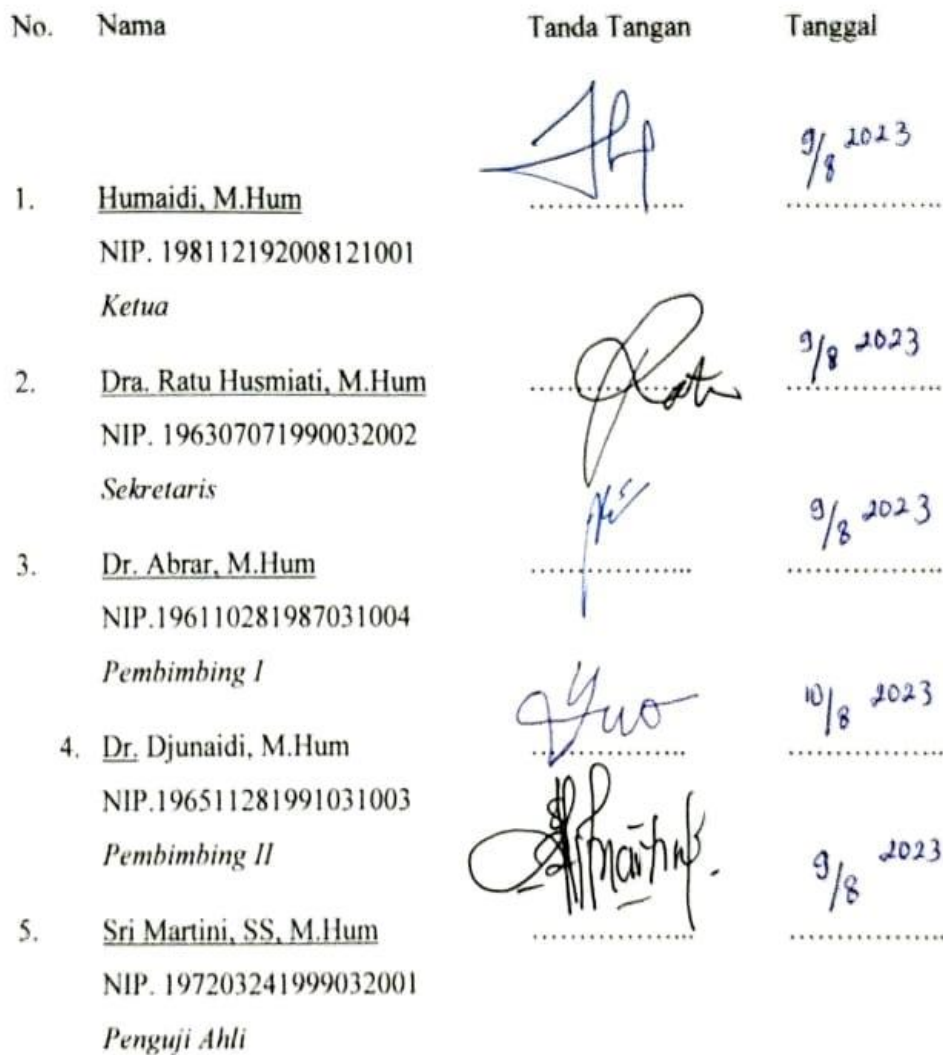 No. Nama Tanda Tangan Tanggal
9/8 2023
1. Humaidi, M.Hum ................ ................
NIP. 198112192008121001
Ketua
9/8 2023
2. Dra. Ratu Husmiati, M.Hum ................ ................
NIP. 196307071990032002
Sekretaris
9/8 2023
3. Dr. Abrar, M.Hum ................ ................
NIP.196110281987031004
Pembimbing I
10/8 2023
4. Dr. Djunaidi, M.Hum ................ ................
NIP.196511281991031003
Pembimbing II
9/8 2023
5. Sri Martini, SS, M.Hum ................ ................
NIP. 197203241999032001
Penguji Ahli